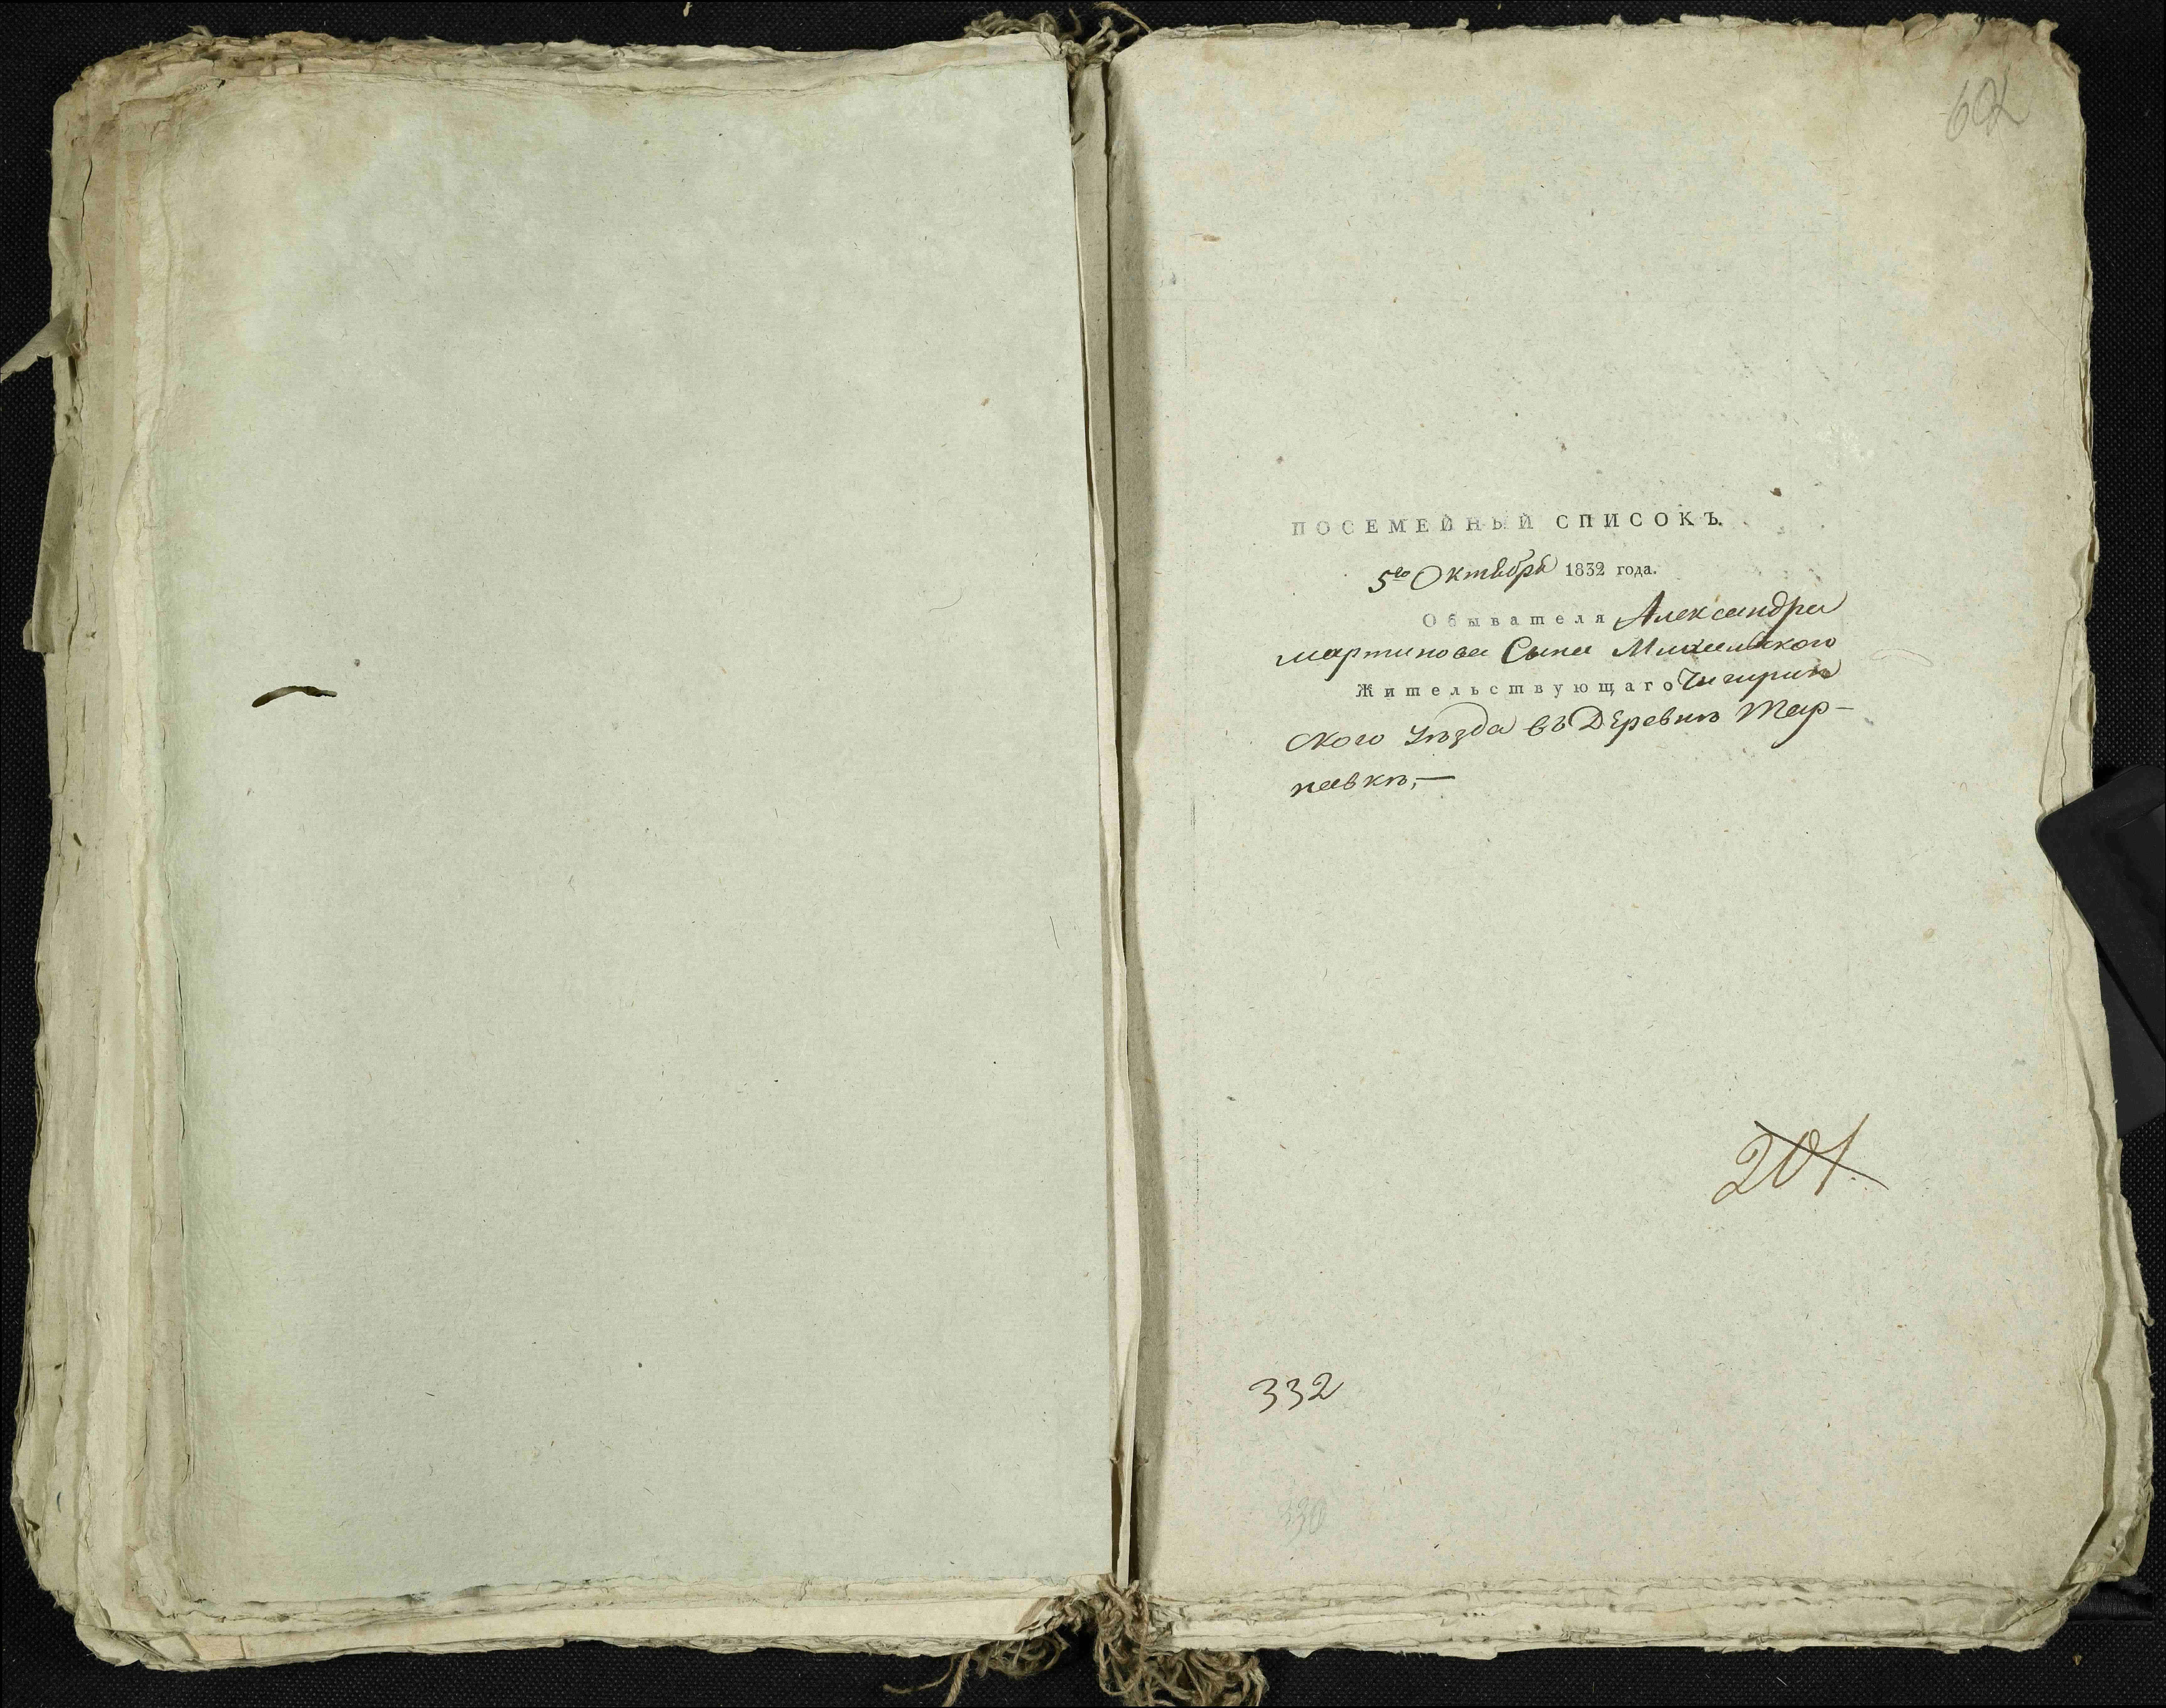 602
ПОСЕМЕЙНЫЙ СПИСОКЪ.
5го Октября 1832 года.
Обывателя Александра
Мартинова Сына
Жительствующаго Чигирин
ского уѣзда въ Деревнѣ Тар-
навкѣ,—
201.
332
330